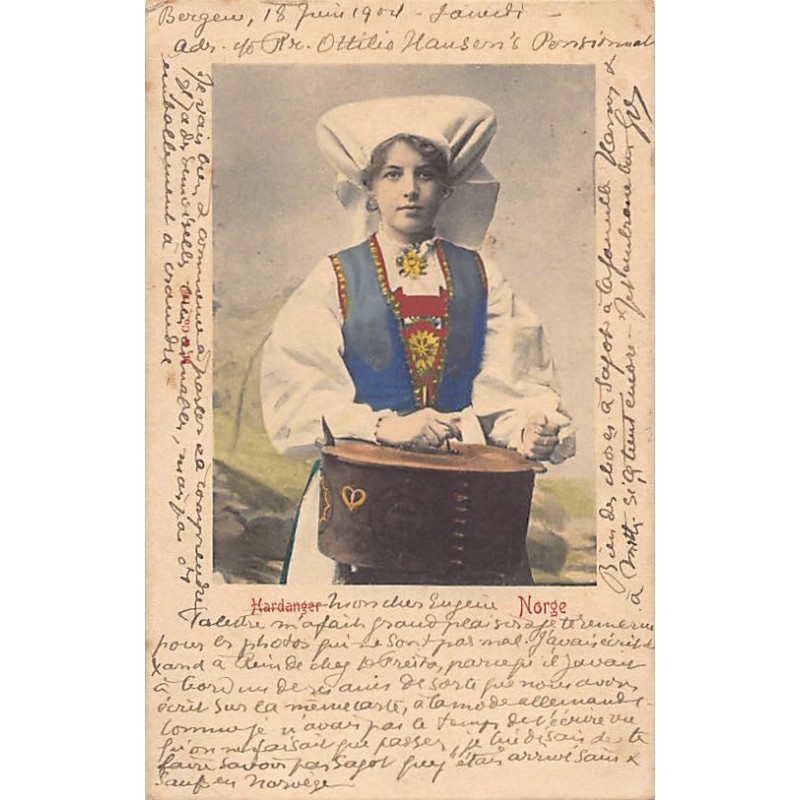 Bergen, 18 Juin 1904 - Samedi -
Adr. c/o Fr. Ottilie Hansen's Pensionnat
Hardanger Norge
Mon cher Eugène
Ta lettre m'a fait grand plaisir & je te remercie
pour les photos qui ne sont pas mal. J'avais écrit d
à Reim de chez D Freito, parce qu'il y avait
à bord un de ses amis de sorte que nous avons
écrit sur la même carte, à la mode allemande.
Comme je n'avais pas le temps de t'écrire vu
qu'on ne faisait que passer, je lui disais de te
faire savoir par Sagot que j'étais arrivé sain &
sauf en Norvège
Je vais bien & commence à parler & à comprendre
Il y a des demoiselles bien aimables, mais pas d'
emballement à craindre -
Bien des choses à Sagot à la famille &
à si ça tient encore -